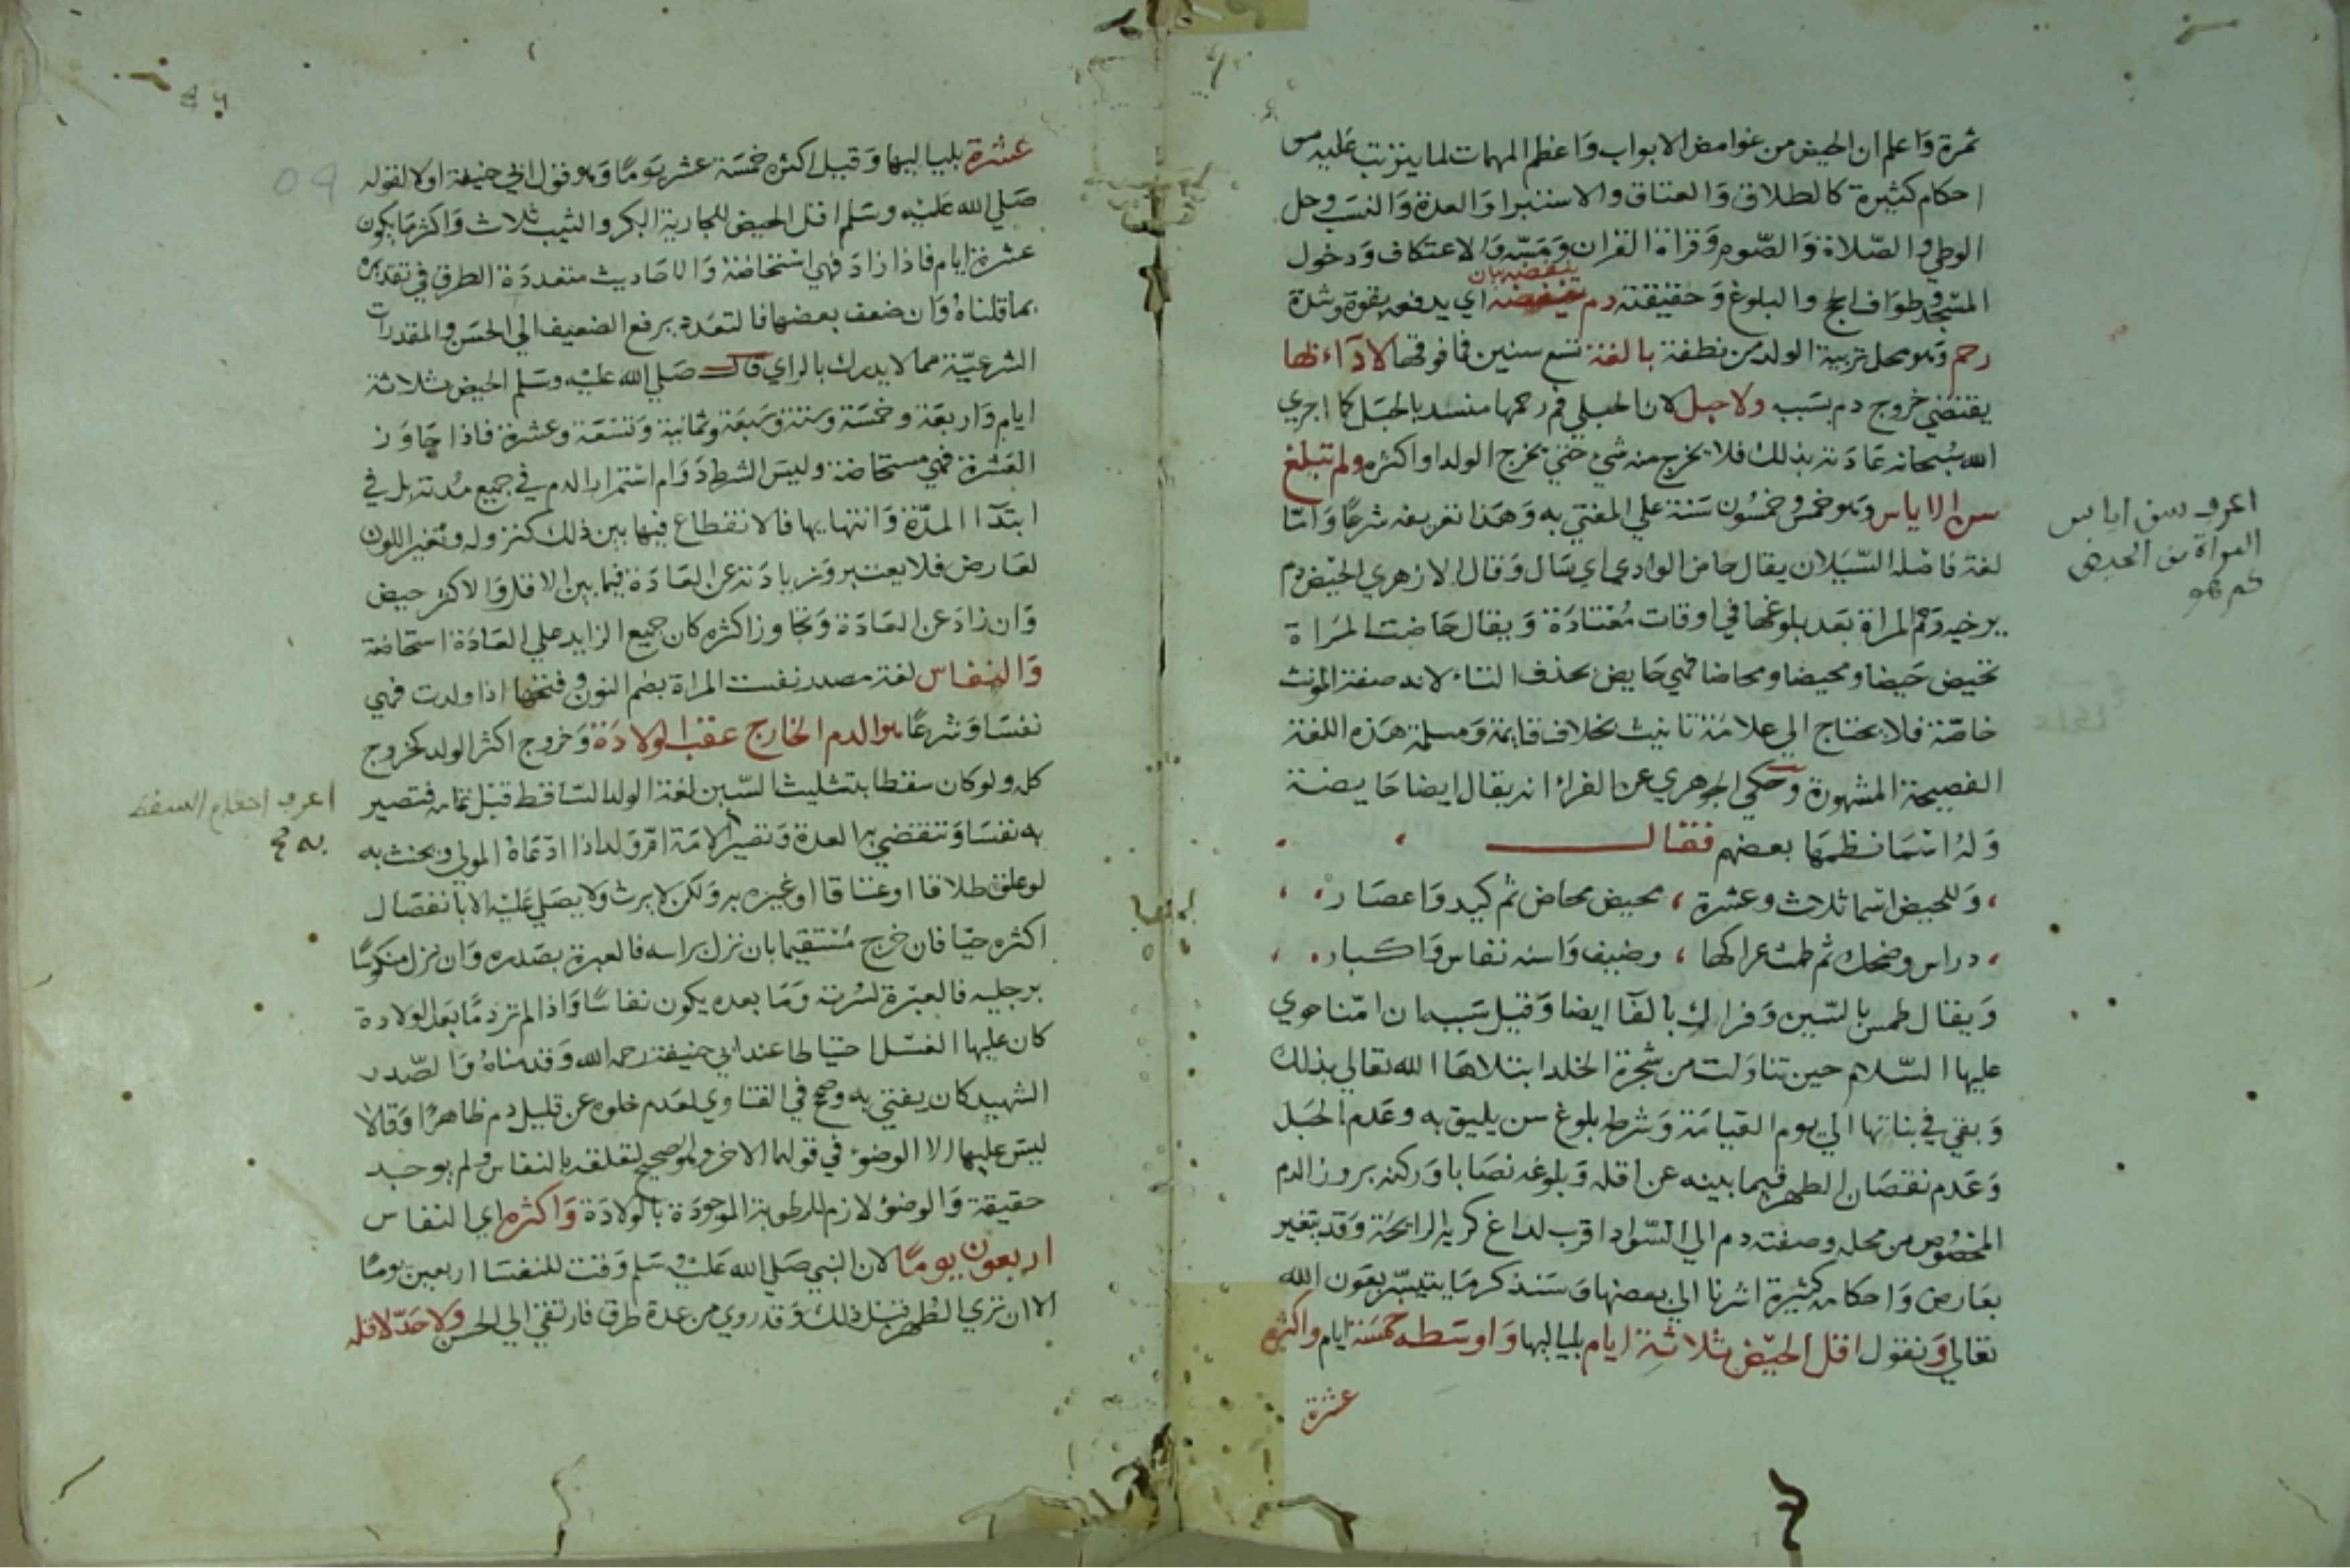 ثمرة وَاعلم ان الحيض من غوامض الابواب وَاعظم المهمات لما يترتب عَليه من
احكام كثيرة كالطلاق وَالعتاق والاستبرا وَالعدة وَالنسَب وحل
الوطي والصّلاة وَالصّوم وَقراة القران وَمَسّه وَالاعتكاف وَدخول
المسجد وطوَاف الحج والبلوغ وَحقيقته دم ينفضه اي يدفعه بقوة وشدة
رحم وَهو محل تربية الولد من نطفة بالغة تسع سنين فما فوقها لا دَآء بها
يقتضي خروج دم بسَبب ولا حبل لان الحبلي فم رحمها منسد بالحبَل كما اجري
الله سُبحانه عَادَته بذلك فلا يخرج منه شيء حتي يخرج الولد او اكثره ولم تبلغ
سن الاياس وَهو خمس وخمسُون سَنة علي المفتي به وَهَذا تعريفه شرعًا وَامّا
لغة فاصله السّيَلان يقال حاض الوادي اي سَال وَقال الازهري الحيَض دم
يرخيه رَحم المراة بَعد بلوغها في اوقات مُعْتادَة وَيقال حَاضت المرَاة
تحيض حَيضا ومحيضا ومحاضا فهي حَايض بحذف التاء لانه صفة المونث
خاصّة فلا يحتاج الي علامَة تانيث بخلاف قايمة وَمسلمة هَذه اللغة
الفصيحة المشهورة وَحكي الجوهري عن الفرا انه يقال ايضا حَايضة
وَلهُ اسْمَا نظمهَا بعضهم فقال
وَللحيض اسْما ثلاث وعشرة ، محيض محاض ثم كيد وَاعصَار
دراس وضحك ثم طمث عراكها ، وضيف وَاسنه نفاس وَاكبار
وَيقال طمس بالسّين وَفراك بالفَا ايضا وَقيل سَببه ان امّنا حوي
عليها السّلام حين تناوَلت من شجَرة الخلد ابتلاهَا الله تعالي بذلك
وَبقي في بناتها الي يوم القيامَة وَشرطه بلوغ سن يليق به وعَدم الحَبَل
وَعَدم نقصَان الطهر فيما بينه عن اقله وَبلوغه نصَابا وَركنه بروز الدم
المخصُوص من محله وصفته دم الي السّوَاد اقرب لداغ كريه الرايحَة وَقد يتغير
بعَارض وَاحكامه كثيرة اشرنا الي بعضها وَسَنذكر مَا يتيسّر بعَون الله
تعالي وَنقول اقل الحَيض ثلاثة ايام بلياليها وَاوسَطه خمسَة ايام واكثره
عشرة
اعرف سن اياس
المراة من الحيض
كم هو
عشرة بلياليها وَقيل اكثره خمسَة عشر يَومًا وَهو قول ابي حنيفة اولا لقوله
صَلي الله عَليْه وسَلم اقل الحيض للجارية البكر والثيب ثلاث وَاكثر مَا يكون
عشرة ايام فاذا زادَ فهي اسْتحَاضة وَالاحَاديث متعددَة الطرق في تقديره
بما قلناهُ وَان ضعف بعضها فالتعَدد يرفع الضعيف الي الحسَن والمقدرات
الشرعيّة مما لا يدرك بالراي قال صَلي الله عليْه وسَلم الحيض ثلاثة
ايام وَاربَعَة وخمسَة وستة وسَبعَة وثمانية وَتسَعَة وعشرة فاذا جَاوَز
العَشرة فهي مستحاضة وليسَ الشرط دَوَام اسْتمرار الدم في جميع مُدته بل في
ابتَدَا المدّة وَانتهايها فالانقطاع فيها بين ذلك كنزوله وَتغير اللون
لعَارض فلا يعتبر وَزيادَته عن العَادَة فيما بين الاقل وَالاكثر حيض
وَان زادَ عن العَادَة وَتجاوز اكثره كان جميع الزايد علي العَادَة استحَاضة
وَالنفاس لغة مصدر نفست المراة بضم النون وفتحها اذا ولدت فهي
نفسَا وَشرعًا هو الدم الخارج عقب الولادَة وَخروج اكثر الولد كخروج
كله ولو كان سقطا بتثليث السّين لغة الولد السّاقط قبل تمامه فتصير
به نفسَا وَتنقضي به العدة وَتصير الامَة امّ وَلد اذا ادّعَاهُ المولي ويحنث به
لو علق طلاقا او عتاقا او غيره به وَلكن لا يرث ولا يصَلي عَليْه الا بانفصَال
اكثره حيّا فان خرج مُسْتقيما بان نزل براسه فالعبرة بصَدره وَان نزل منكوسًا
برجليه فالعبرَة لسُرته وَمَا بعده يكون نفاسًا وَاذا لم تر دمًا بعَد الولادة
كان عليها الغسْل احتياطا عند ابي حنيفة رحمه الله وَقدمناهُ وَالصّدر
الشهيد كان يفتي به وصحح في الفتاوي لعَدم خلوه عن قليل دم ظاهرًا وَقالا
ليسَ عليها الا الوضوء في قولهما الاخر وَهو الصحيح لتعلقه بالنفاس ولم يوجد
حقيقة وَالوضوُ لازم للرطوبة الموجودَة بالولادَة وَاكثره اي النفاس
اربعون يومًا لان النبي صَلي الله عَليْه سَلم وَقت للنفسَا اربعين يومًا
الا ان تري الطُهر قبل ذلك وَقد روي من عدة طرق فارتقي الي الحسن ولا حَدّ لاقله
اعرف احكام السقط